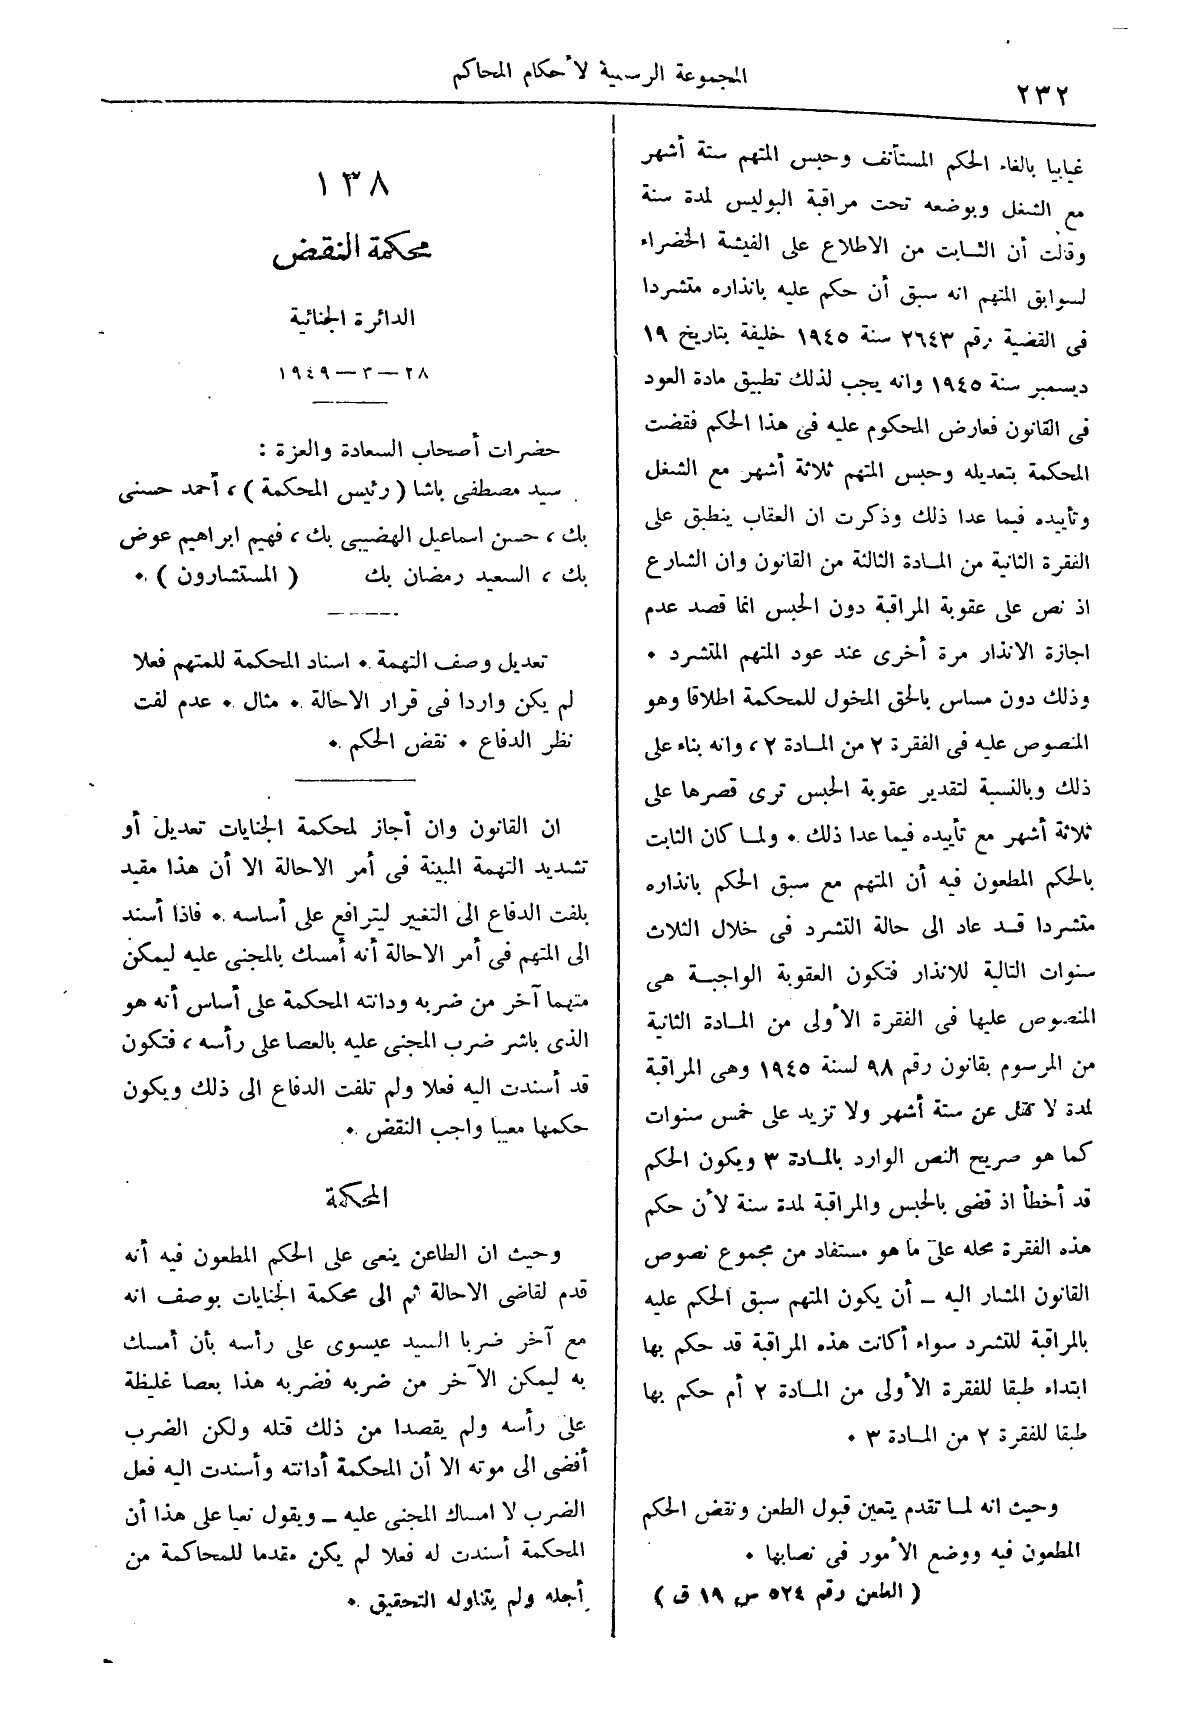 ٢٣٢
المجموعة الرسمية لأحكام المحاكم
غيابيا بالغاء الحكم المستأنف وحبس المتهم ستة أشهر
مع الشغل وبوضعه تحت مراقبة البوليس لمدة سنة
وقالت أن الثابت من الاطلاع على الفيشة الخضراء
لسوابق المتهم انه سبق أن حكم عليه بانذاره متشردا
فى القضية رقم ٢٦٤٣ سنة ١٩٤٥ خليفة بتاريخ ١٩
ديسمبر سنة ١٩٤٥ وانه يجب لذلك تطبيق مادة العود
فى القانون فعارض المحكوم عليه فى هذا الحكم فقضت
المحكمة بتعديله وحبس المتهم ثلاثة أشهر مع الشغل
وتأييده فيما عدا ذلك وذكرت ان العقاب ينطبق على
الفقرة الثانية من المادة الثالثة من القانون وان الشارع
اذ نص على عقوبة المراقبة دون الحبس انما قصد عدم
اجازة الانذار مرة أخرى عند عود المتهم المتشرد .
وذلك دون مساس بالحق المخول للمحكمة اطلاقا وهو
المنصوص عليه فى الفقرة ٢ من المادة ٢ ، وانه بناء على
ذلك وبالنسبة لتقدير عقوبة الحبس ترى قصرها على
ثلاثة أشهر مع تأييده فيما عدا ذلك . ولما كان الثابت
بالحكم المطعون فيه أن المتهم مع سبق الحكم بانذاره
متشردا قد عاد الى حالة التشرد فى خلال الثلاث
سنوات التالية للانذار فتكون العقوبة الواجبة هى
المنصوص عليها فى الفقرة الأولى من المادة الثانية
من المرسوم بقانون رقم ٩٨ لسنة ١٩٤٥ وهى المراقبة
لمدة لا تقل عن ستة أشهر ولا تزيد على خمس سنوات
كما هو صريح النص الوارد بالمادة ٣ ويكون الحكم
قد أخطأ اذ قضى بالحبس والمراقبة لمدة سنة لأن حكم
هذه الفقرة محله على ما هو مستفاد من مجموع نصوص
القانون المشار اليه ــ أن يكون المتهم سبق الحكم عليه
بالمراقبة للتشرد سواء أكانت هذه المراقبة قد حكم بها
ابتداء طبقا للفقرة الأولى من المادة ٢ أم حكم بها
طبقا للفقرة ٢ من المادة ٣ .
وحيث انه لما تقدم يتعين قبول الطعن ونقض الحكم
المطعون فيه ووضع الأمور فى نصابها .
( الطعن رقم ٥٢٤ س ١٩ ق )
١٣٨
محكمة النقض
الدائرة الجنائية
٢٨ — ٣ — ١٩٤٩
حضرات أصحاب السعادة والعزة :
سيد مصطفى باشا ( رئيس المحكمة ) ، أحمد حسنى
بك ، حسن اسماعيل الهضيبى بك ، فهيم ابراهيم عوض
بك ، السعيد رمضان بك ( المستشارون ) .
تعديل وصف التهمة . اسناد المحكمة للمتهم فعلا
لم يكن واردا فى قرار الاحالة . مثال . عدم لفت
نظر الدفاع . نقض الحكم .
ان القانون وان أجاز لمحكمة الجنايات تعديل أو
تشديد التهمة المبينة فى أمر الاحالة الا أن هذا مقيد
بلفت الدفاع الى التغيير ليترافع على أساسه . فاذا أسند
الى المتهم فى أمر الاحالة أنه أمسك بالمجنى عليه ليمكن
متهما آخر من ضربه ودانته المحكمة على أساس أنه هو
الذى باشر ضرب المجنى عليه بالعصا على رأسه ، فتكون
قد أسندت اليه فعلا ولم تلفت الدفاع الى ذلك ويكون
حكمها معيبا واجب النقض .
المحكمة
وحيث ان الطاعن ينعى على الحكم المطعون فيه أنه
قدم لقاضى الاحالة ثم الى محكمة الجنايات بوصف انه
مع آخر ضربا السيد عيسوى على رأسه بأن أمسك
به ليمكن الآخر من ضربه فضربه هذا بعصا غليظة
على رأسه ولم يقصدا من ذلك قتله ولكن الضرب
أفضى الى موته الا أن المحكمة أدانته وأسندت اليه فعل
الضرب لا امساك المجنى عليه ــ ويقول نعيا على هذا أن
المحكمة أسندت له فعلا لم يكن مقدما للمحاكمة من
أجله ولم يتناوله التحقيق .